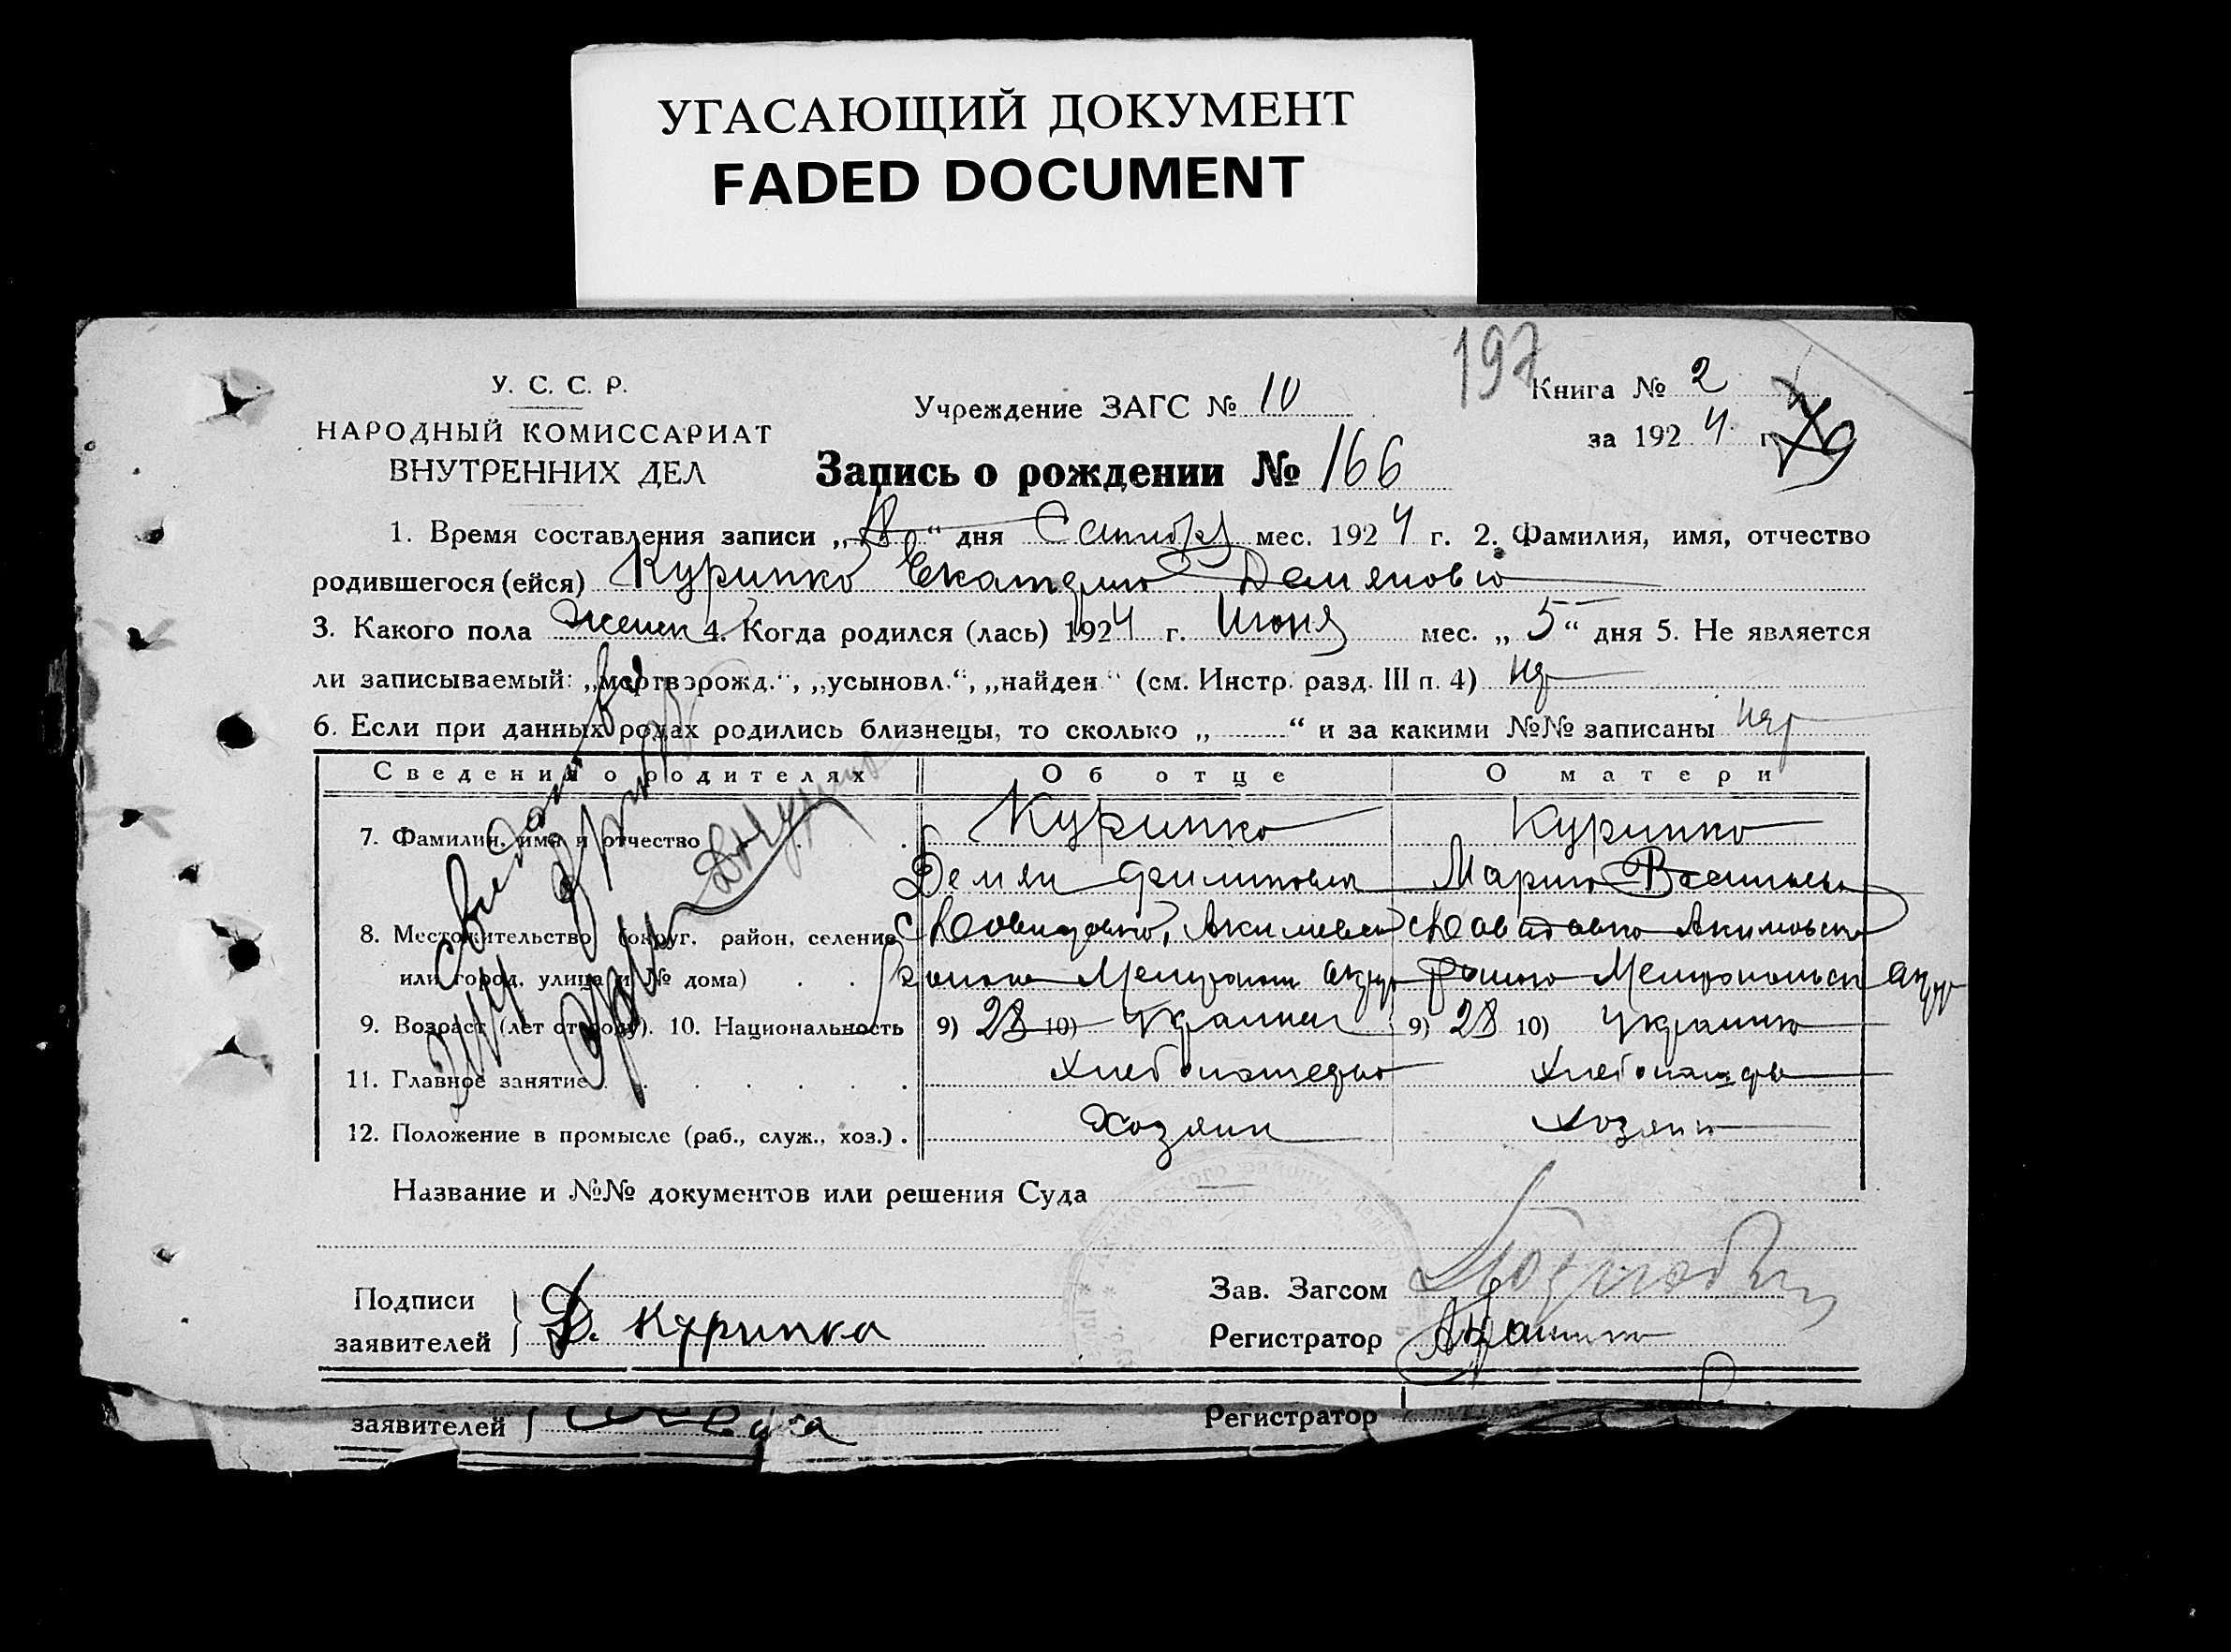 УГАСАЮЩИЙ ДОКУМЕНТ
FADED DOCUMENT
197
У. С. С. Р.
НАРОДНЫЙ КОМИССАРИАТ
ВНУТРЕННИХ ДЕЛ
Учреждение ЗАГС № 10
Книга № 2
за 1924 г.
79
Запись о рождении № 166
1. Время составления записи „ “ дня Сентября мес. 1924 г. 2. Фамилия, имя, отчество
родившегося (ейся) Курипко Екатерина Демяновна
3. Какого пола женск 4. Когда родился (лась) 1924 г. Июня мес. „ 5 “ дня 5. Не является
ли записываемый: „мертворожд.“, „усыновл.“, „найден“ (см. Инстр. разд. III п. 4) нет
6. Если при данных родах родились близнецы, то сколько „ “ и за какими №№ записаны нет
Сведения о родителях Об отце О матери
7. Фамилия, имя и отчество Курипко Курипко
Демян Филипович Мария
8. Местожительство (округ, район, селение с Давидовка, Акимовск с Давидовка Акимовск
или город, улица и № дома) района Мелитопольск округ района Мелитопольск округ
9. Возраст (лет от роду). 10. Национальность 9) 28 10) Украинец 9) 28 10) Украинка
11. Главное занятие Хлебопашество Хлебопаш
12. Положение в промысле (раб., служ., хоз.) Хозяин Хозяин
Название и №№ документов или решения Суда
Подписи
заявителей Д. Курипка
Зав. Загсом
Регистратор
заявителей
Регистратор